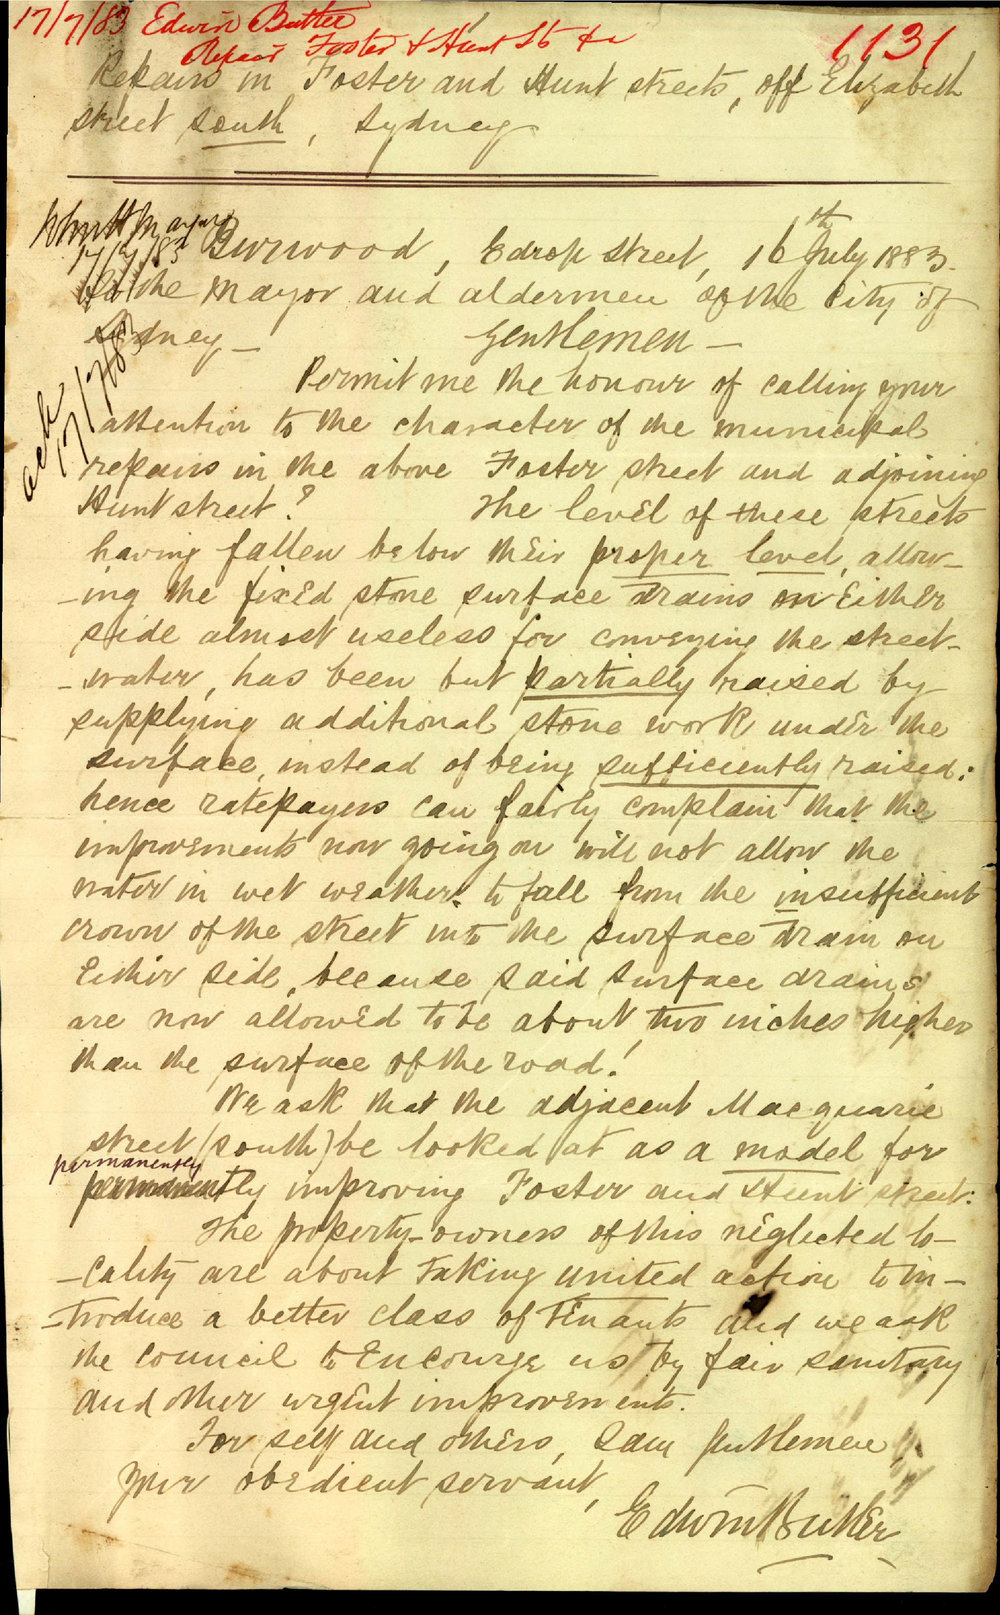 17/7/83 Edwin Butler
Repair Foster & Hunt St &c
1131
Repairs in Foster and Hunt streets, off Elizabeth
street south, Sydney
17/7/83
Burwood, Edrop street, 16th July 1883.
To the Mayor and aldermen of the City of
Sydney — Gentlemen —
ack
17/7/83
Permit me the honour of calling your
attention to the character of the municipal
repairs in the above Foster street and adjoining
Hunt street? The level of these streets
having fallen below their proper level, allow-
-ing the fixed stone surface drains on Either
side almost useless for conveying the street-
-water, has been but partially raised by
supplying additional stone work under the
surface, instead of being sufficiently raised:
hence ratepayers can fairly complain that the
improvements now going on will not allow the
water in wet weather to fall from the insufficient
crown of the street into the surface drain on
Either side, because said surface drains
are now allowed to be about two inches higher
than the surface of the road!
We ask that the adjacent Macquarie
street (south) be looked at as a model for
permanently
permanently improving Foster and Hunt street:
The property-owners of this neglected lo-
-cality are about taking united action to in-
-troduce a better class of tenants and we ask
the council to Encourge us by fair sanitary
and other urgent improvements.
For self and others, I am gentlemen,
your obedient servant,
Edwin Butler